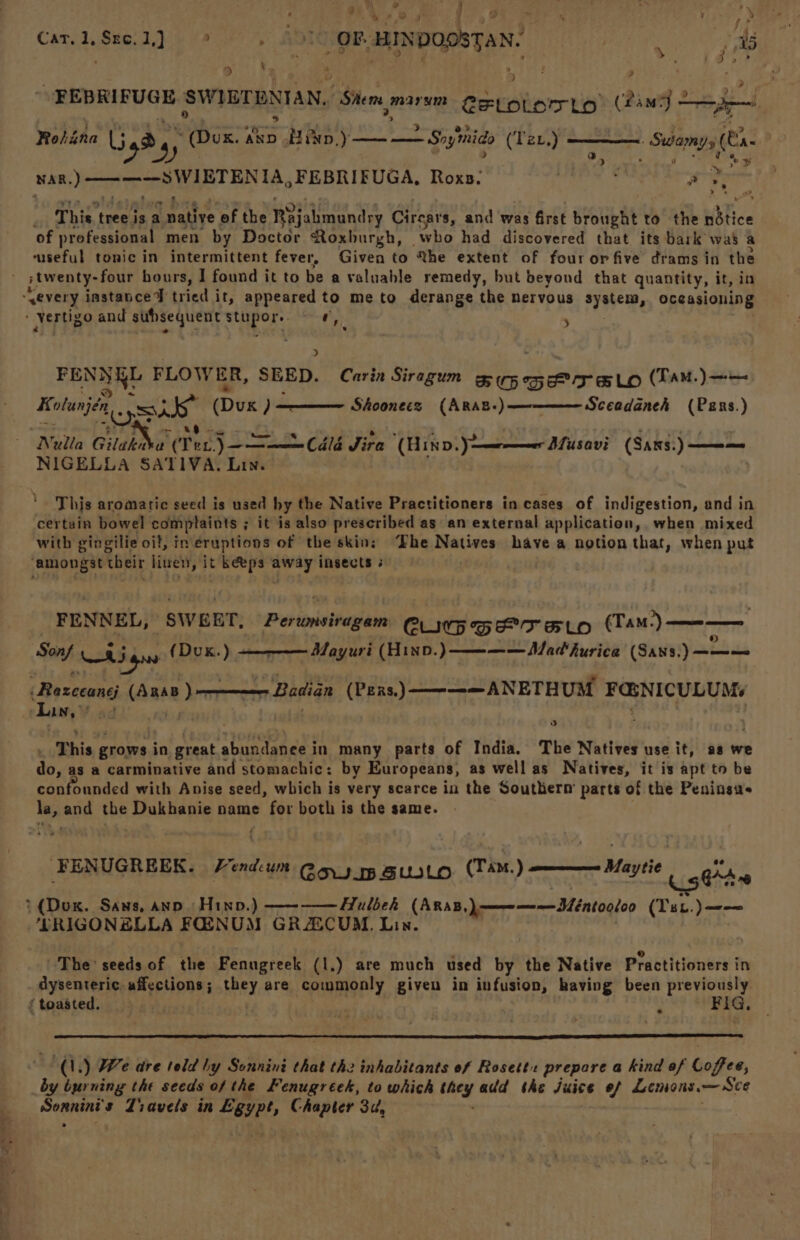 CAT. 1, SEC. 1,] OF HINDOOSTAN. 15
FEBRIFUGE SWIETENIAN. Shem marum (TAM.)
Rohĕna (DUK. AND HIND.) —— —— Soymido (TEL.) ———— Swamy, (CA-
NAR.) ————SWIETENIA, FEBRIFUGA, ROXB.
This tree is a native of the Rajahmundry Circars, and was first brought to the notice
of professional men by Doctor Roxburgh, who had discovered that its bark was a
useful tonic in intermittent fever, Given to the extent of four or five drams in the
twenty-four hours, I found it to be a valuable remedy, but beyond that quantity, it, in
every instance I tried it, appeared to me to derange the nervous system, occasioning
vertigo and subsequent stupor.
FENNEL FLOWER, SEED. Carin Siragum கருஞ்சீரகம் (TAM.)——
Kolunjen (DUK) ———— Shooneez (ARAB.)————Sceadāneh (PERS.)
Nulla (TEL.) ————Cálá Jira (HIND.)————Musavi (SANS.) ————
NIGELLA SATIVA. LIN.
This aromatic seed is used by the Native Practitioners in cases of indigestion, and in
certain bowel complaints ; it is also prescribed as an external application, when mixed
with gingilie oil, in eruptions of the skin: The Natives have a notion that, when put
amongst their linen, it keeps away insects ;
FENNEL, SWEET, Perumsiragam பெருஞ்சீரகம் (TAM.) ————
Sonf (DUK.) ————Mayuri (HIND.)————Mad'hurica (SANS.)————
Razeeanej (ARAB)———— Badian (PERS.)————ANETHUM FŒNICULUM,
LIN,
This grows in great abundance in many parts of India. The Natives use it, as we
do, as a carminative and stomachic: by Europeans, as well as Natives, it is apt to be
confounded with Anise seed, which is very scarce in the Southern parts of the Peninsu-
la, and the Dukhanie name for both is the same.
FENUGREEK. Vendeum வெந்தயம் (TAM.) ———— Maytie
(DUK. SANS, AND HIND.) ————Hulbeh (ARAB,)————Mĕntooloo (TEL.)———
TRIGONELLA FŒNUM GRÆCUM. LIN.
The seeds of the Fenugreek (1.) are much used by the Native Practitioners in
dysenteric affections; they are commonly given in infusion, having been previously
toasted. FIG,
(1.) We are told by Sonnini that the inhabitants of Rosetta prepare a kind of Coffee,
by burning the seeds of the Fenugreek, to which they add the juice of Lemons.—See
Sonnini's Travels in Egypt, Chapter 3d,